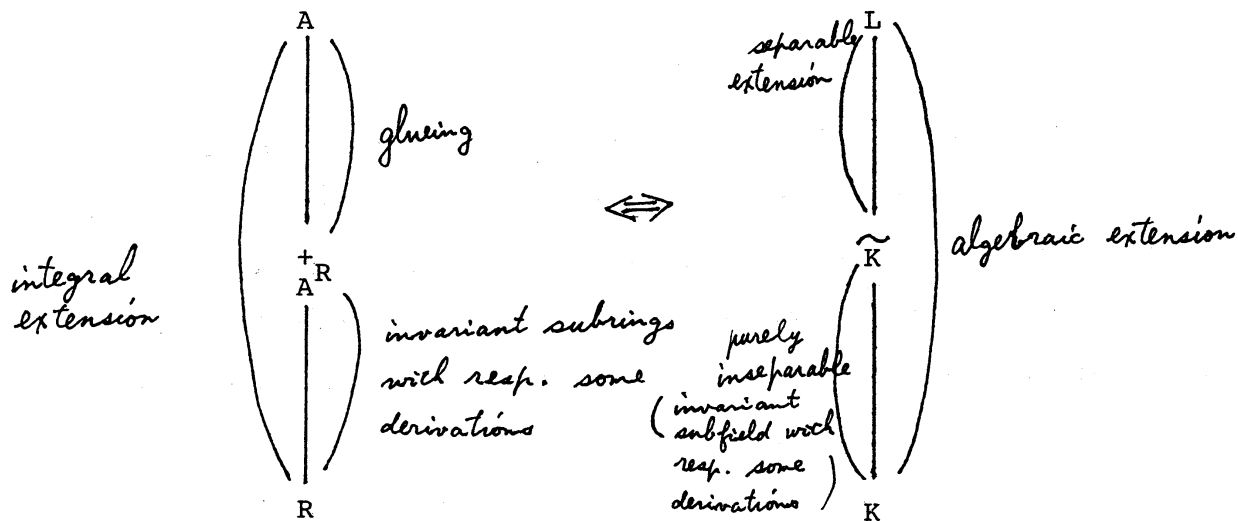 A
glueing
integral
extensión
+
A R
invariant subrings
with resp. some
derivatións
R
⇔
L
separable
extensión
~
K
algebraic extensión
purely
inseparable
(invariant
subfield with
resp. some
derivatións)
K